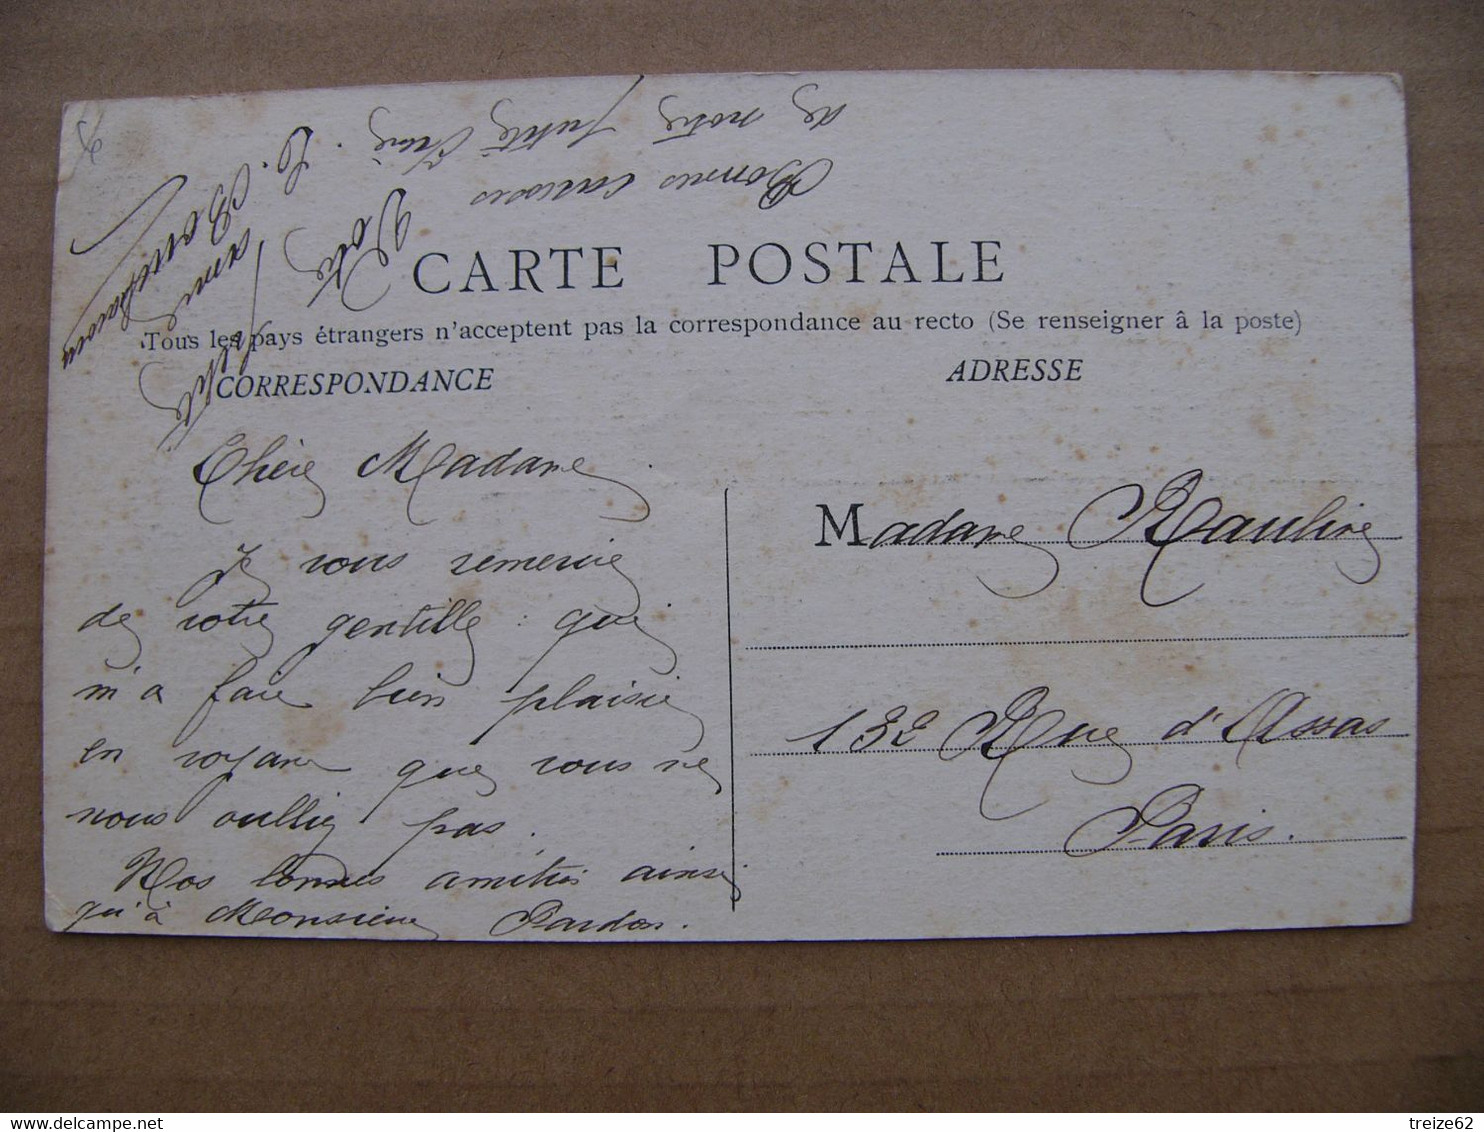 Bonnes caresses
de notre petite
Votre
amie
CARTE POSTALE
Tous les pays étrangers n'acceptent pas la correspondance au recto (Se renseigner à la poste)
CORRESPONDANCE
ADRESSE
Chère Madame
Je vous remercie
de votre gentille : qui
m'a faie bien plaisir
en voyant que vous ne
nous oulliez pas.
Nos bonnes amitiés ainsi
qu'à Monsieur Pardon.
Madame Rauline
132 Rue d'Assas
Paris.
treize62